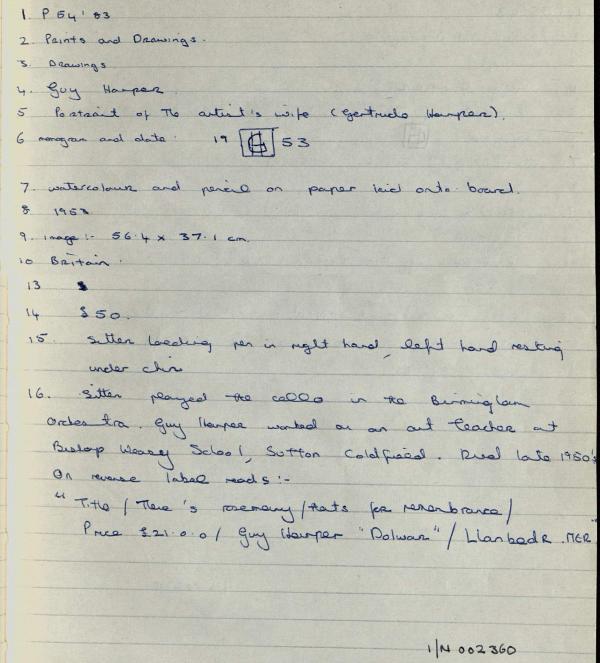 1. P 54' 83
2. Prints and Drawings.
3. Drawings
4. Guy Harper
5 Portrait of The artist's wife (Gertrude Harper).
6 monogram and date. 19 GH 53
7. watercolour and pencil on paper laid onto board.
8. 1953
9. image :- 56.4 x 37.1 cm.
10 Britain.
13
14 $50.
15. Sitter holding pen in right hand, left hand resting
under chin
16. Sitter played the cello in the Birmingham
Orchestra. Guy Harper worked as an art teacher at
Bishop Vesey School, Sutton Coldfield. Died late 1950's
On reverse label reads :-
" Title / There 's rosemary / thats for remembrance /
Price £21.0.0 / Guy Harper "Dolwar" / Llanbedr. MER"
I/N 002360